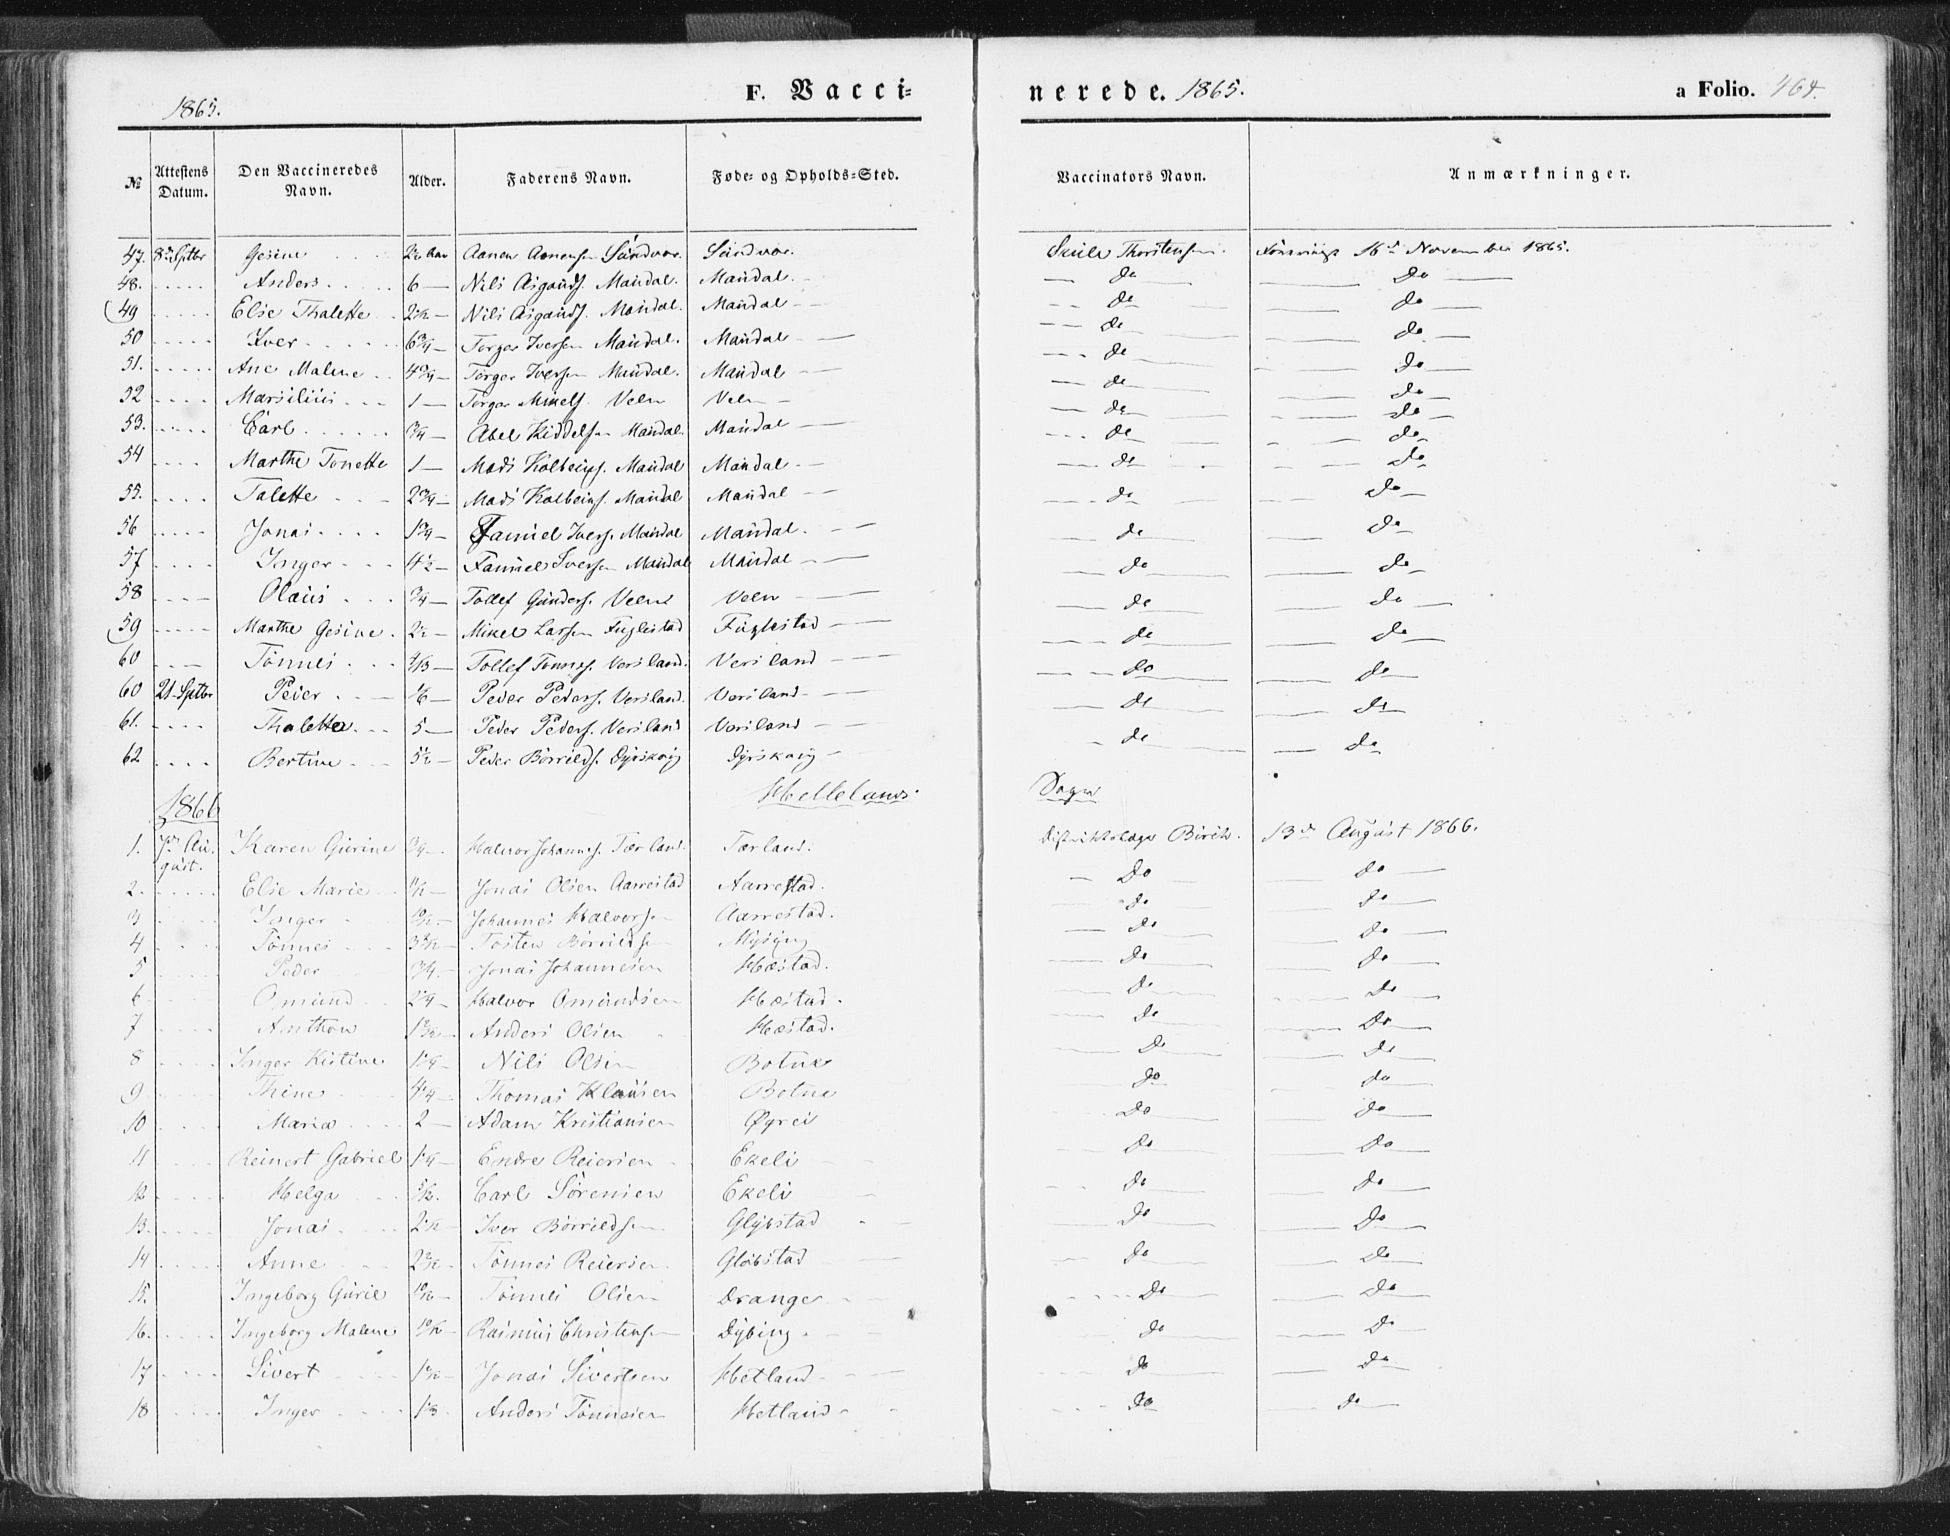 1865.
F. Vacci-
nerede. 1865.
a Folio. 464.
№ Attestens Datum. Den Vaccineredes Navn. Alder. Faderens Navn. Føde- og Opholds-Sted. Vaccinators Navn. Anmærkninger.
47. 8de Septbr Gesine Aanen Aanensen Sundvor. Sundvor. Skule Thorstensen. 16de November 1865.
48. Anders 6 Nils Asgauds. Mandal. Mandal do do
49 Else Thalette Nils Asgauds. Mandal. Mandal do do
50 Iver 6 3/4 Torger Iversen Mandal. Mandal do do
51. Ane Malene 4 3/4 Torger Iversen Mandal. Mandal do do
52 Marsilius 1 Torger Mikels. Velen Velen do do
53. Carl 3/4 Abel Kiddelsen Mandal. Mandal do do
54 Marthe Tonette 1 Mads Kolbeins. Mandal Mandal do do
55. Talette 2 3/4 Mads Kolbeins. Mandal Mandal do do
56 Jonas 1 3/4 Samuel Ivers. Mandal Mandal. do do
57 Inger 4 1/2 Samuel Iversen Mandal Mandal do do
58 Olaus 3/4 Tollef Gunders. Velen Velen do do
59 Marthe Gesine. 2 1/2 Mikel Larsen Fuglestad Fuglestad do do
60 Tønnes Tollef Tønnes. Versland. Versland do do
60 21 Septbr Peder 1/6 Peder Peders. Versland. Versland do do
61. Thalette 5 Peder Peders. Versland Versland do do
62 Bertine 5 1/2 Peder Børrilds. Dyrskog Dyrskog do do
1866 Hellelands Sogn
1. 7de August. Karen Gurine 3/4 Halvor Johannes. Tærland. Tærland. Distriktslæge Birch. 13de August 1866.
2. Else Marie Jonas Olsen Aarrestad Aarrestad. do do
3 Inger Johannes Halvorsen Aarrestad. do do
4 Tønnes Tosten Børrildsen Mysing do do
5 Peder 3/4 Jonas Johannesen Hæstad. do do
6 Omund 2 1/4 Halvor Omundsen Hæstad. do do
7 Anthon Anders Olsen Hæstad. do do
8 Inger Kistine 1 1/4 Nils Olsen Botne do do
9 Thine 4 1/4 Thomas Klausen Botne do do
10 Maria 2 Adam Kristiansen Øgrei do do
11 Reinert Gabriel 1 1/4 Endre Reiersen Ekeli do do
12 Helga Carl Sørensen Ekeli do do
13. Jonas Iver Børrildsen Gløbstad do do
14 Anne Tønnes Reiersen Gløbstad do do
15. Ingeborg Gurie Tønnes Olsen Drange do do
16. Ingeborg Malene Rasmus Christensen Dybing do do
17 Sivert Jonas Sivertsen Hetland do do
18 Inger Anders Tønnesen Hetland do do